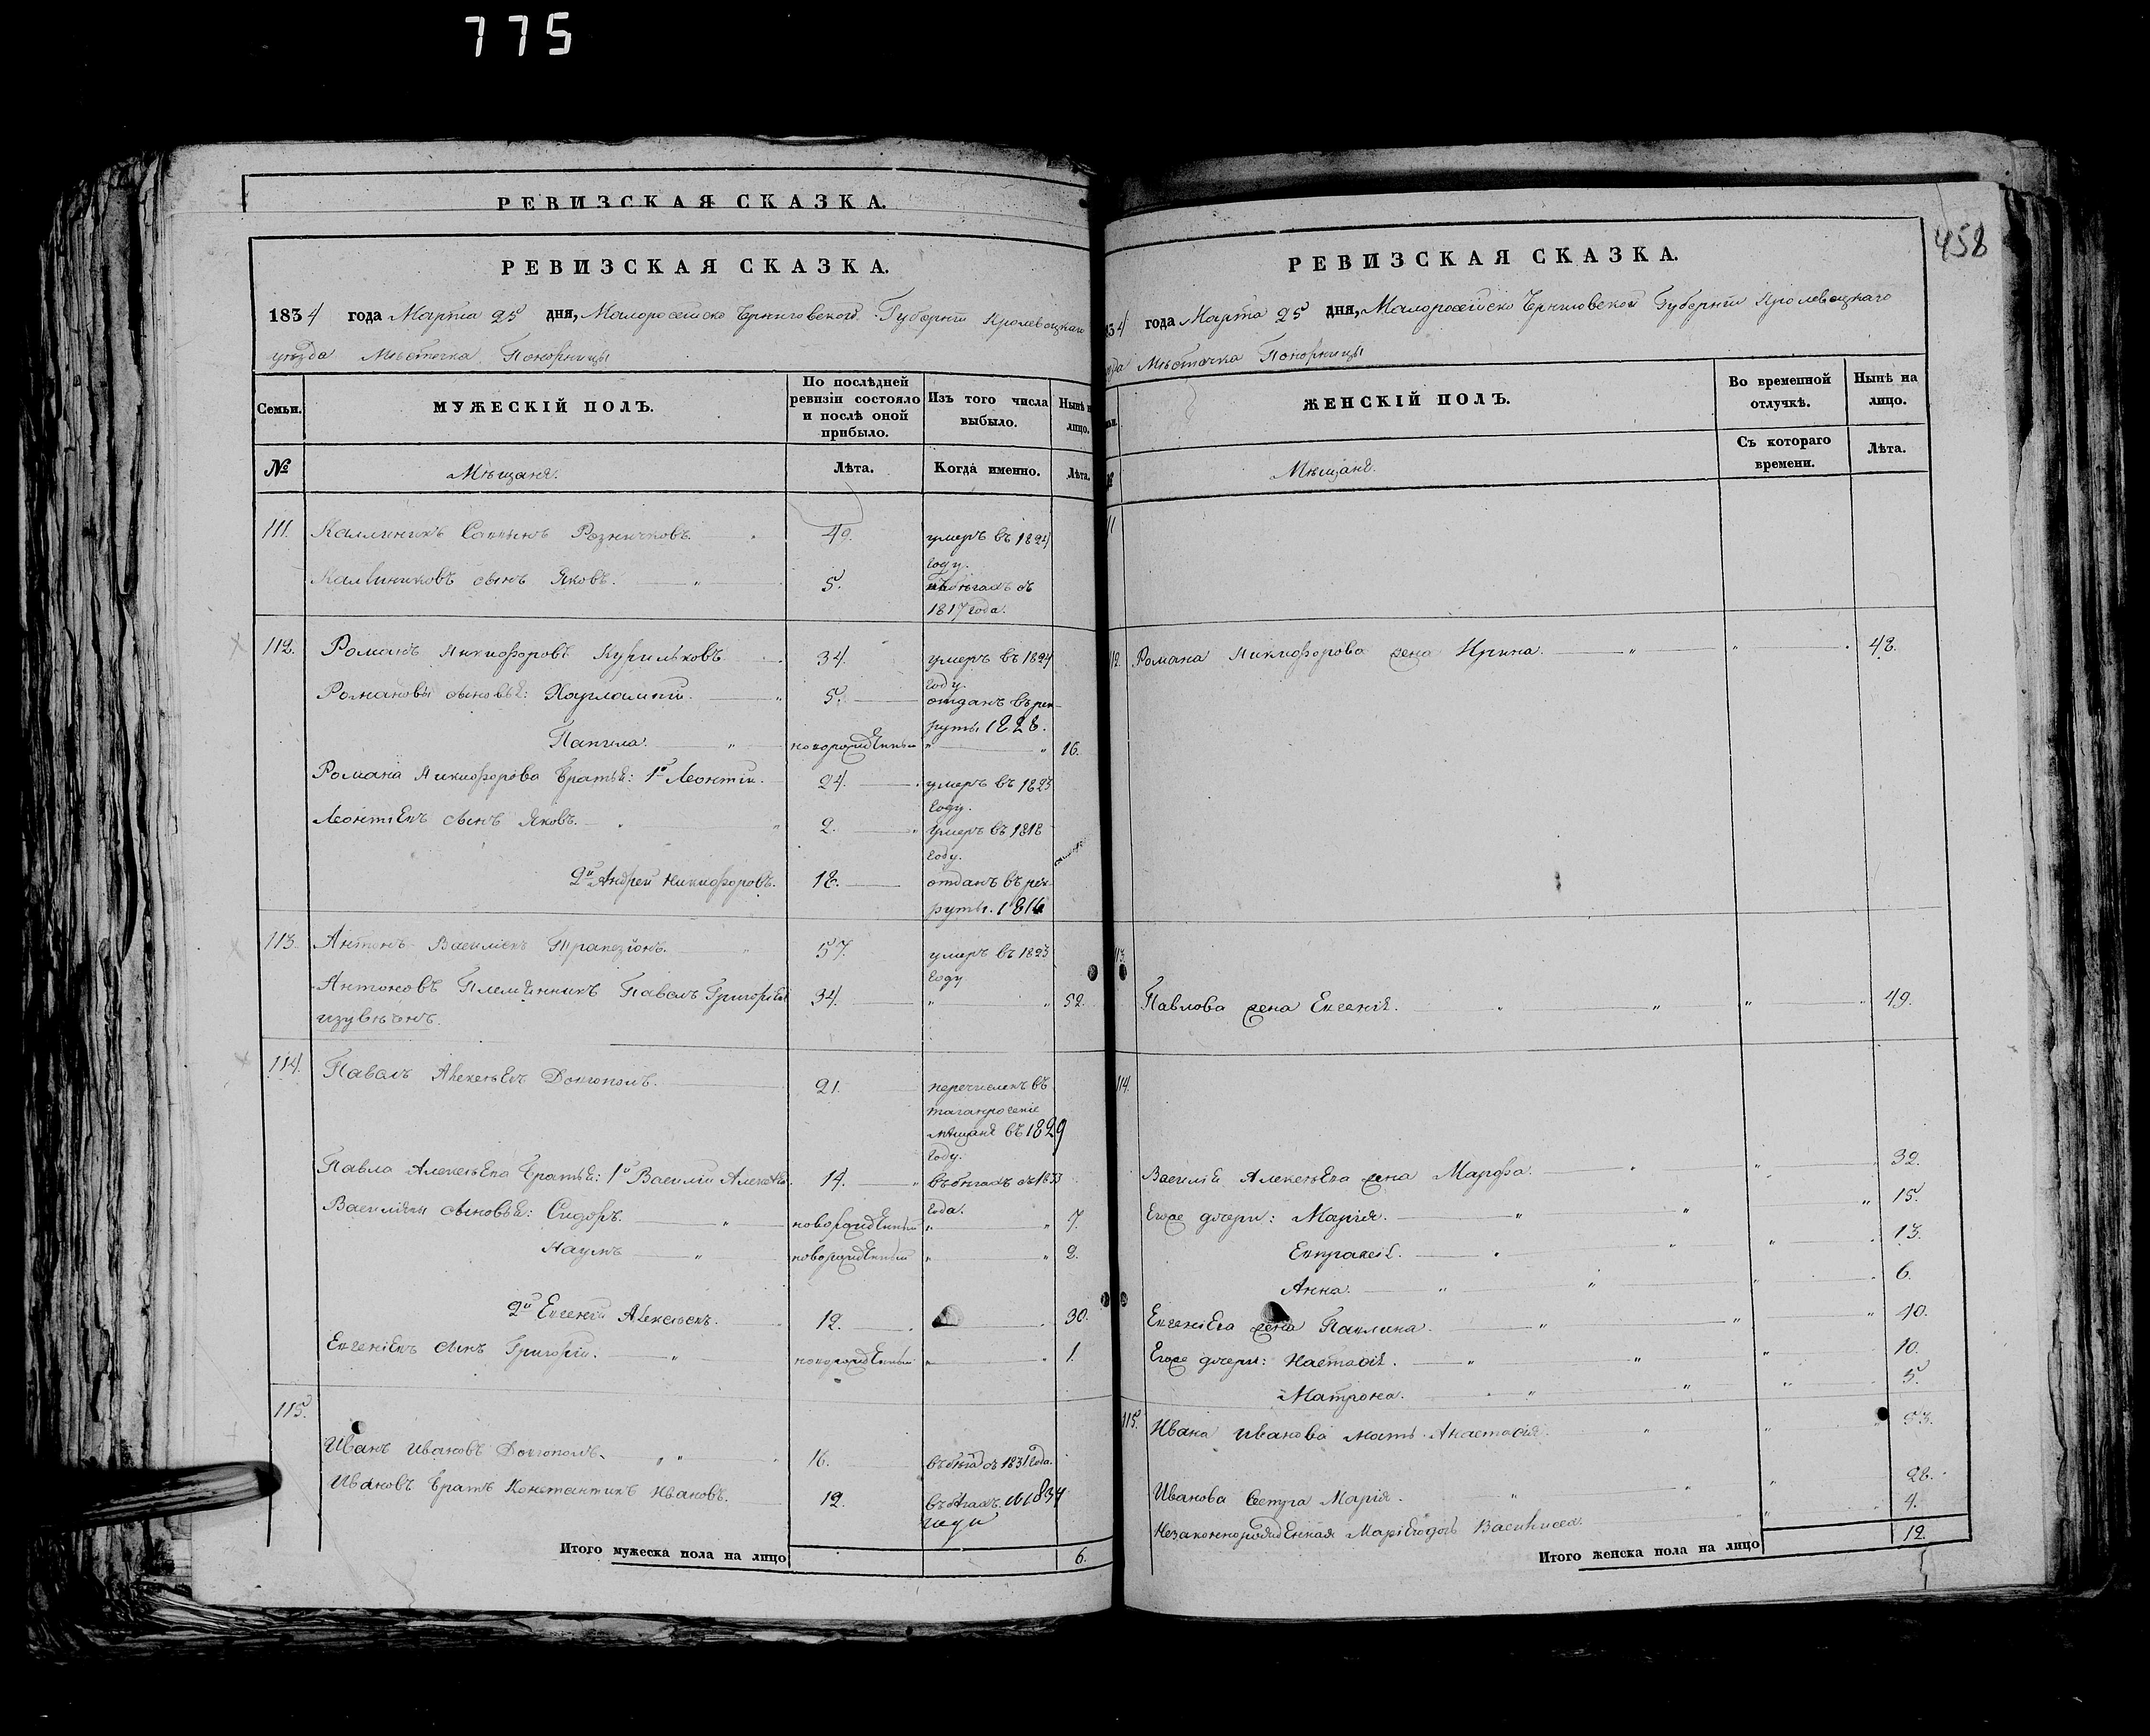 775
РЕВИЗСКАЯ СКАЗКА.
РЕВИЗСКАЯ СКАЗКА.
1834 года Марта 25 дня, Малоросейско Чрниговской Губерніи Кролевецкаго
уезда Мѣстечка Понорницы
Семьи. МУЖЕСКІЙ ПОЛЪ. По послѣдней ревизіи состояло и послѣ оной прибыло. Изъ того числа выбыло. Нынѣ н лицо.
№ Мѣщане. Лѣта. Когда именно. Лѣта.
111. Калиникъ Розничковъ. 49. умеръ въ 1824
году.
Калиниковъ сынъ Яковъ. 5. въ бѣгахъ съ
1817 года.
112. Романъ Никифоровъ Курильковъ 34. умеръ въ 1824
году.
Романовы сыновья: Харлампій. 5. отданъ въ рек-
руты 1828.
новорожденный 16.
Романа Никифорова братья: 1й Леонтій. 24. умеръ въ 1823
году.
Леонтіевъ сынъ Яковъ. 2. умеръ въ 1818
году.
2й Андрей Никифоровъ. 18. отданъ въ рек-
руты. 1816
113. Антонъ Василіевъ 57. умеръ въ 1823
году
Антоновъ Племянникъ Павелъ Григоріевъ 34. 52.
изувѣченъ.
114. Павелъ Алексѣевъ Долгополъ. 21. перечисленъ въ
таганрогскіе
мѣщане въ 1829
году.
Павла Алексѣева братья: 1й Василій Алексѣев. 14. въ бѣгахъ съ 1833
года.
Василіевы сыновья: Сидоръ. новорожденный 7.
Наумъ новорожденный 2.
2й Евгеній Алексѣевъ. 12. 30.
Евгеніевъ сынъ Григорій. новорожденный 1.
115.
Иванъ Ивановъ Долгополъ 16. въ бѣгах съ 1831 года.
Ивановъ братъ Константинъ Ивановъ. 12. въ бѣгахъ. 1834
году
Итого мужеска пола на лицо 6.
458
РЕВИЗСКАЯ СКАЗКА.
34 года Марта 25 дня, Малоросейско Чрниговской Губерніи Кролевецкаго
Мѣстечка Понорницы
ЖЕНСКІЙ ПОЛЪ. Во временной отлучкѣ. Нынѣ на лицо.
Мѣщане. Съ котораго времени. Лѣта.
11
12. Романа Никифорова жена Ирина. 48.
113.
Павлова жена Евгенія. 49.
114.
Василія Алексѣева жена Марфа. 32.
Егоже дочери: Марія. 15.
Евпраксія. 13.
Анна. 6.
Евгеніева жена Павлина. 40.
Егоже дочери: Настасія. 10.
Матрона. 5.
115. Ивана Иванова мать Анастасія. 53.
Иванова Сестра Марія. 28.
Незаконнорожденная Васинисса. 4.
Итого женска пола на лицо 12.